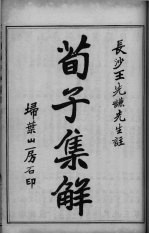 長沙王先謙先生註
荀子集解
掃葉山房石印